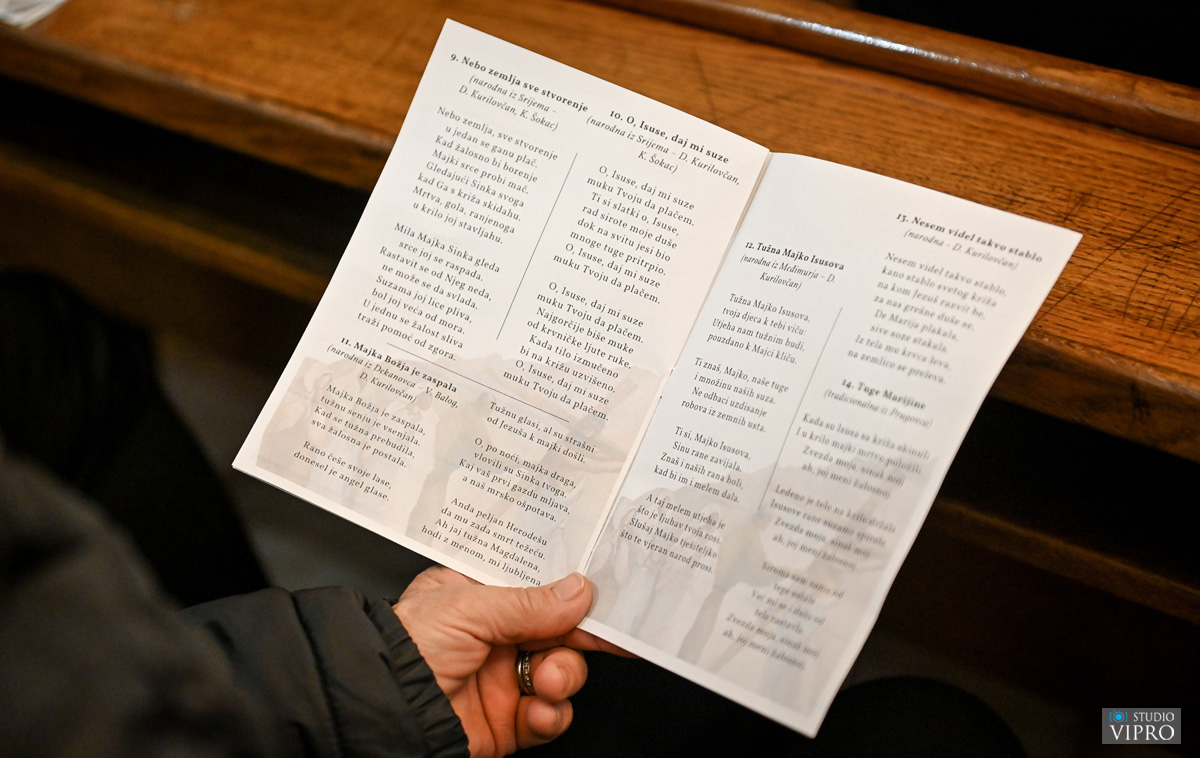 9. Nebo zemlja sve stvorenje
(narodna iz Srijema –
D. Kurilovčan, K. Šokac)
Nebo zemlja, sve stvorenje
u jedan se ganu plač.
Kad žalosno bi borenje
Majki srce probi mač.
Gledajući Sinka svoga
kad Ga s križa skidahu.
Mrtva, gola, ranjenoga
u krilo joj stavljahu.
Mila Majka Sinka gleda
srce joj se raspada.
Rastavit se od Njeg neda,
ne može se da svlada.
Suzama joj lice pliva,
bol joj veća od mora.
U jednu se žalost sliva
traži pomoć od zgora.
10. O, Isuse, daj mi suze
(narodna iz Srijema – D. Kurilovčan,
K. Šokac)
O, Isuse, daj mi suze
muku Tvoju da plačem.
Ti si slatki o, Isuse,
rad sirote moje duše
dok na svitu jesi bio
mnoge tuge pritrpio.
O, Isuse, daj mi suze
muku Tvoju da plačem.
O, Isuse, daj mi suze
muku Tvoju da plačem.
Najgorčije biše muke
od krvničke ljute ruke.
Kada tilo izmučeno
bi na križu uzvišeno.
O, Isuse, daj mi suze
muku Tvoju da plačem.
11. Majka Božja je zaspala
(narodna iz Dekanovca – V. Balog,
D. Kurilovčan)
Majka Božja je zaspala,
tužnu senju je vsenjala.
Kad se tužna prebudila,
sva žalosna je postala.
Rano češe svoje lase,
donesel je angel glase.
Tužnu glasi, al su strašni
od Jezuša k majki došli.
O po noći, majka draga,
vlovili su Sinka tvoga
Kaj vaš, prvi gazdu nijava,
a naš mrsko ošpotava.
Anda peljan Herodešu
da mu zada smrt težeču.
Ah jaj tužna Magdalena,
hodi z menom, mi ljubljena
12. Tužna Majko Isusova
(narodna iz Međimurja – D.
Kurilovčan)
Tužna Majko Isusova,
tvoja djeca k tebi viču:
Utjeha nam tužnim budi,
pouzdano k Majci kliču.
Ti znaš, Majko, naše tuge
i množinu naših suza.
Ne odbaci uzdisanje
robova iz zemnih usta.
Ti si, Majko Isusova,
Sinu rane zavijala,
Znaš i naših rana boli,
kad bi im i melem dala.
A taj melem utjeha je
što je ljubav tvoja rosi.
Slušaj Majko tješiteljko
što te vjeran narod prosi.
13. Nesem videl takvo stablo
(narodna - D. Kurilovčan)
Nesem videl takvo stablo,
kano stablo svetog križa
na kom Jezuš razvit be,
za nas grešne duše se.
De Marija plakala,
sive soze stakala.
Iz tela mu krvca leva,
na zemlice se preleva.
14. Tuge Marijine
(tradicionalna iz Prugovca)
Kada su Isusa sa križa skinuli
I u krilo majki mrtvo položili
Zvezda moja, sinak moj
ah, joj meni žalosnoj
Ledeno je telo na krilo stižala
Isusove rane suzama ispirala
Zvezda moja, sinak moj
ah, joj meni žalosnoj
Sirota sam sama od
tege ostala
Već mi se i duša od
tela rastavla.
Zvezda moja, sinak moj
ah, joj meni žalosnoj
STUDIO
VIPRO